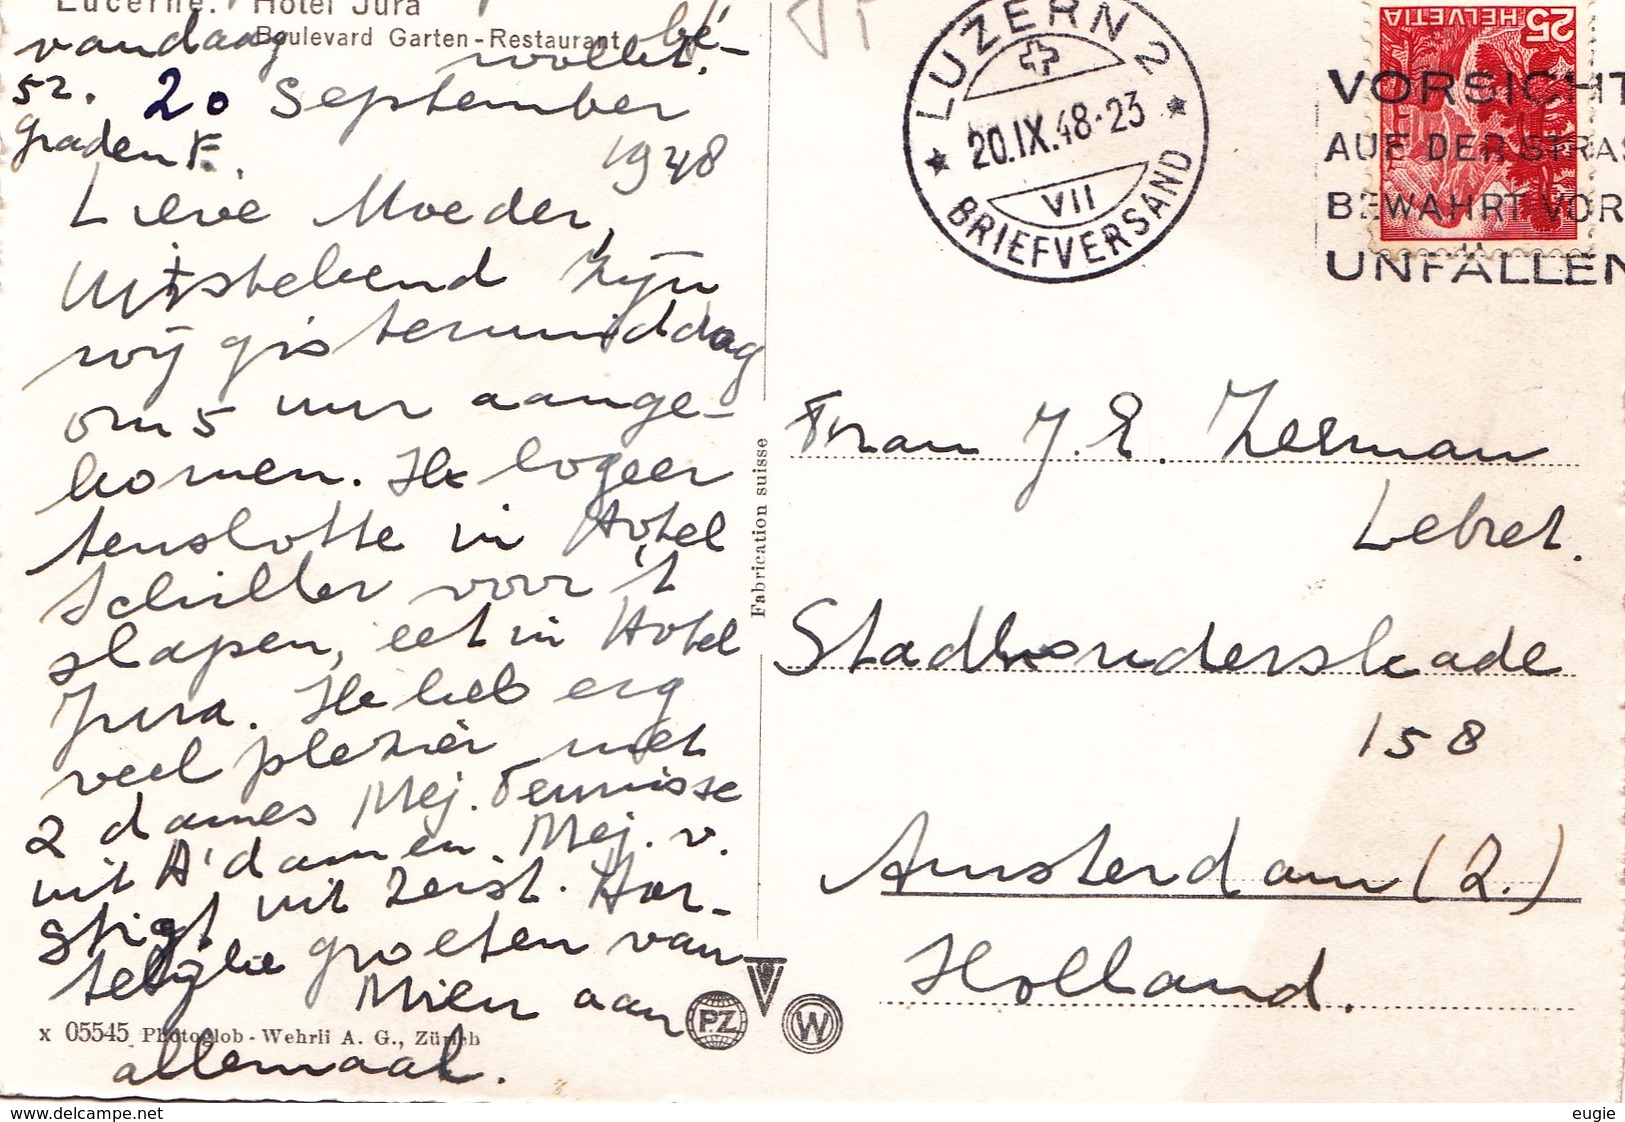 Lucerne. Hotel Jura
Boulevard Garten-Restaurant
vandaag bé-
wolkt,
52.
graden F.
20 September
1948
Lieve Moeder,
Uitstekend zijn
wij gistermiddag
om 5 uur aange-
komen. Ik logeer
tenslotte in Hotel
Schiller voor 't
slapen, eet in Hotel
Jura. Ik heb erg
veel plezier met
2 dames Mej. Tennisse
uit A'dam en Mej. v.
Stigt uit Zeist. Har-
telijke groeten van
Mien aan
allemaal.
x 05545 Photoglob-Wehrli A. G., Zürich
Fabrication suisse
PZ
W
LUZERN 2
20.IX.48-23
VII
BRIEFVERSAND
HELVETIA 25
VORSICHT
AUF DER STRAS
BEWAHRT VOR
UNFÄLLEN
Frau J. E. Zeeman
Lebret.
Stadhouderskade
158
Amsterdam (2.)
Holland.
www.delcampe.net
eugie